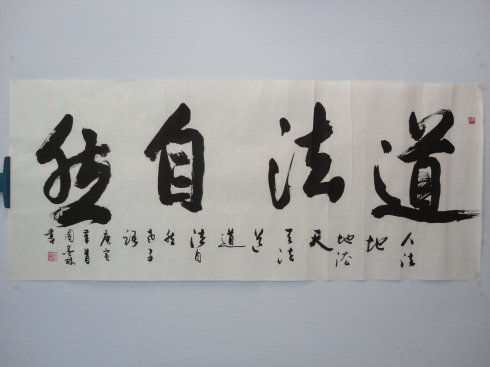 道法自然
人法
地
地法
天
天法
道
道
法自
然
老子
语
庚寅
周
书